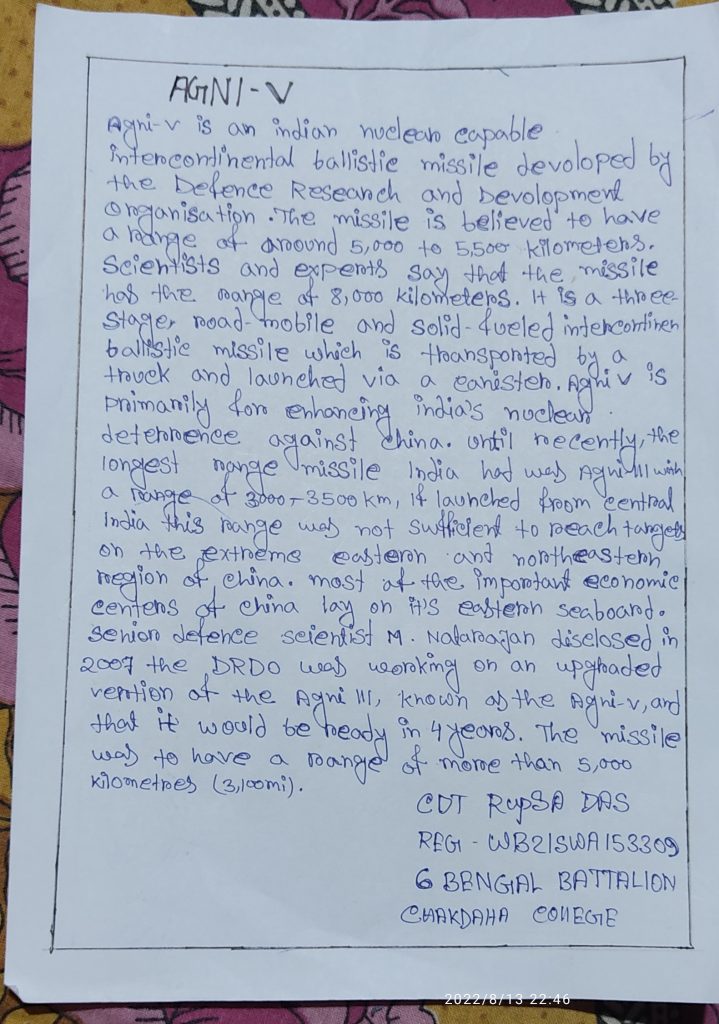 AGNI-V
Agni-V is an indian nuclear capable
intercontinental ballistic missile devoloped by
the Defence Research and Devolopment
Organisation. The missile is believed to have
a range of around 5,000 to 5,500 kilometers.
Scientists and experts say that the missile
has the range of 8,000 kilometers. It is a three-
stage, road-mobile and solid-fueled intercontinen
ballistic missile which is transported by a
truck and launched via a canister. Agni V is
primarily for enhancing india's nuclear
deterrence against China. until recently, the
longest range missile India had was Agni III with
a range of 3000-3500 km, if launched from central
India this range was not sufficient to reach targets
on the extreme eastern and northeastern
region of china. most of the important economic
centers of china lay on it's eastern seaboard.
senior defence scientist M. Nataraajan disclosed in
2007 the DRDO was working on an upgraded
vertion of the Agni III, known as the Agni-V, and
that it would be ready in 4 years. The missile
was to have a range of more than 5,000
kilometres (3,100mi).
CDT RupSA DAS
REGI - WB21SWA153309
6 BENGAL BATTALION
CHAKDAHA COllEGE
2022/8/13 22:46